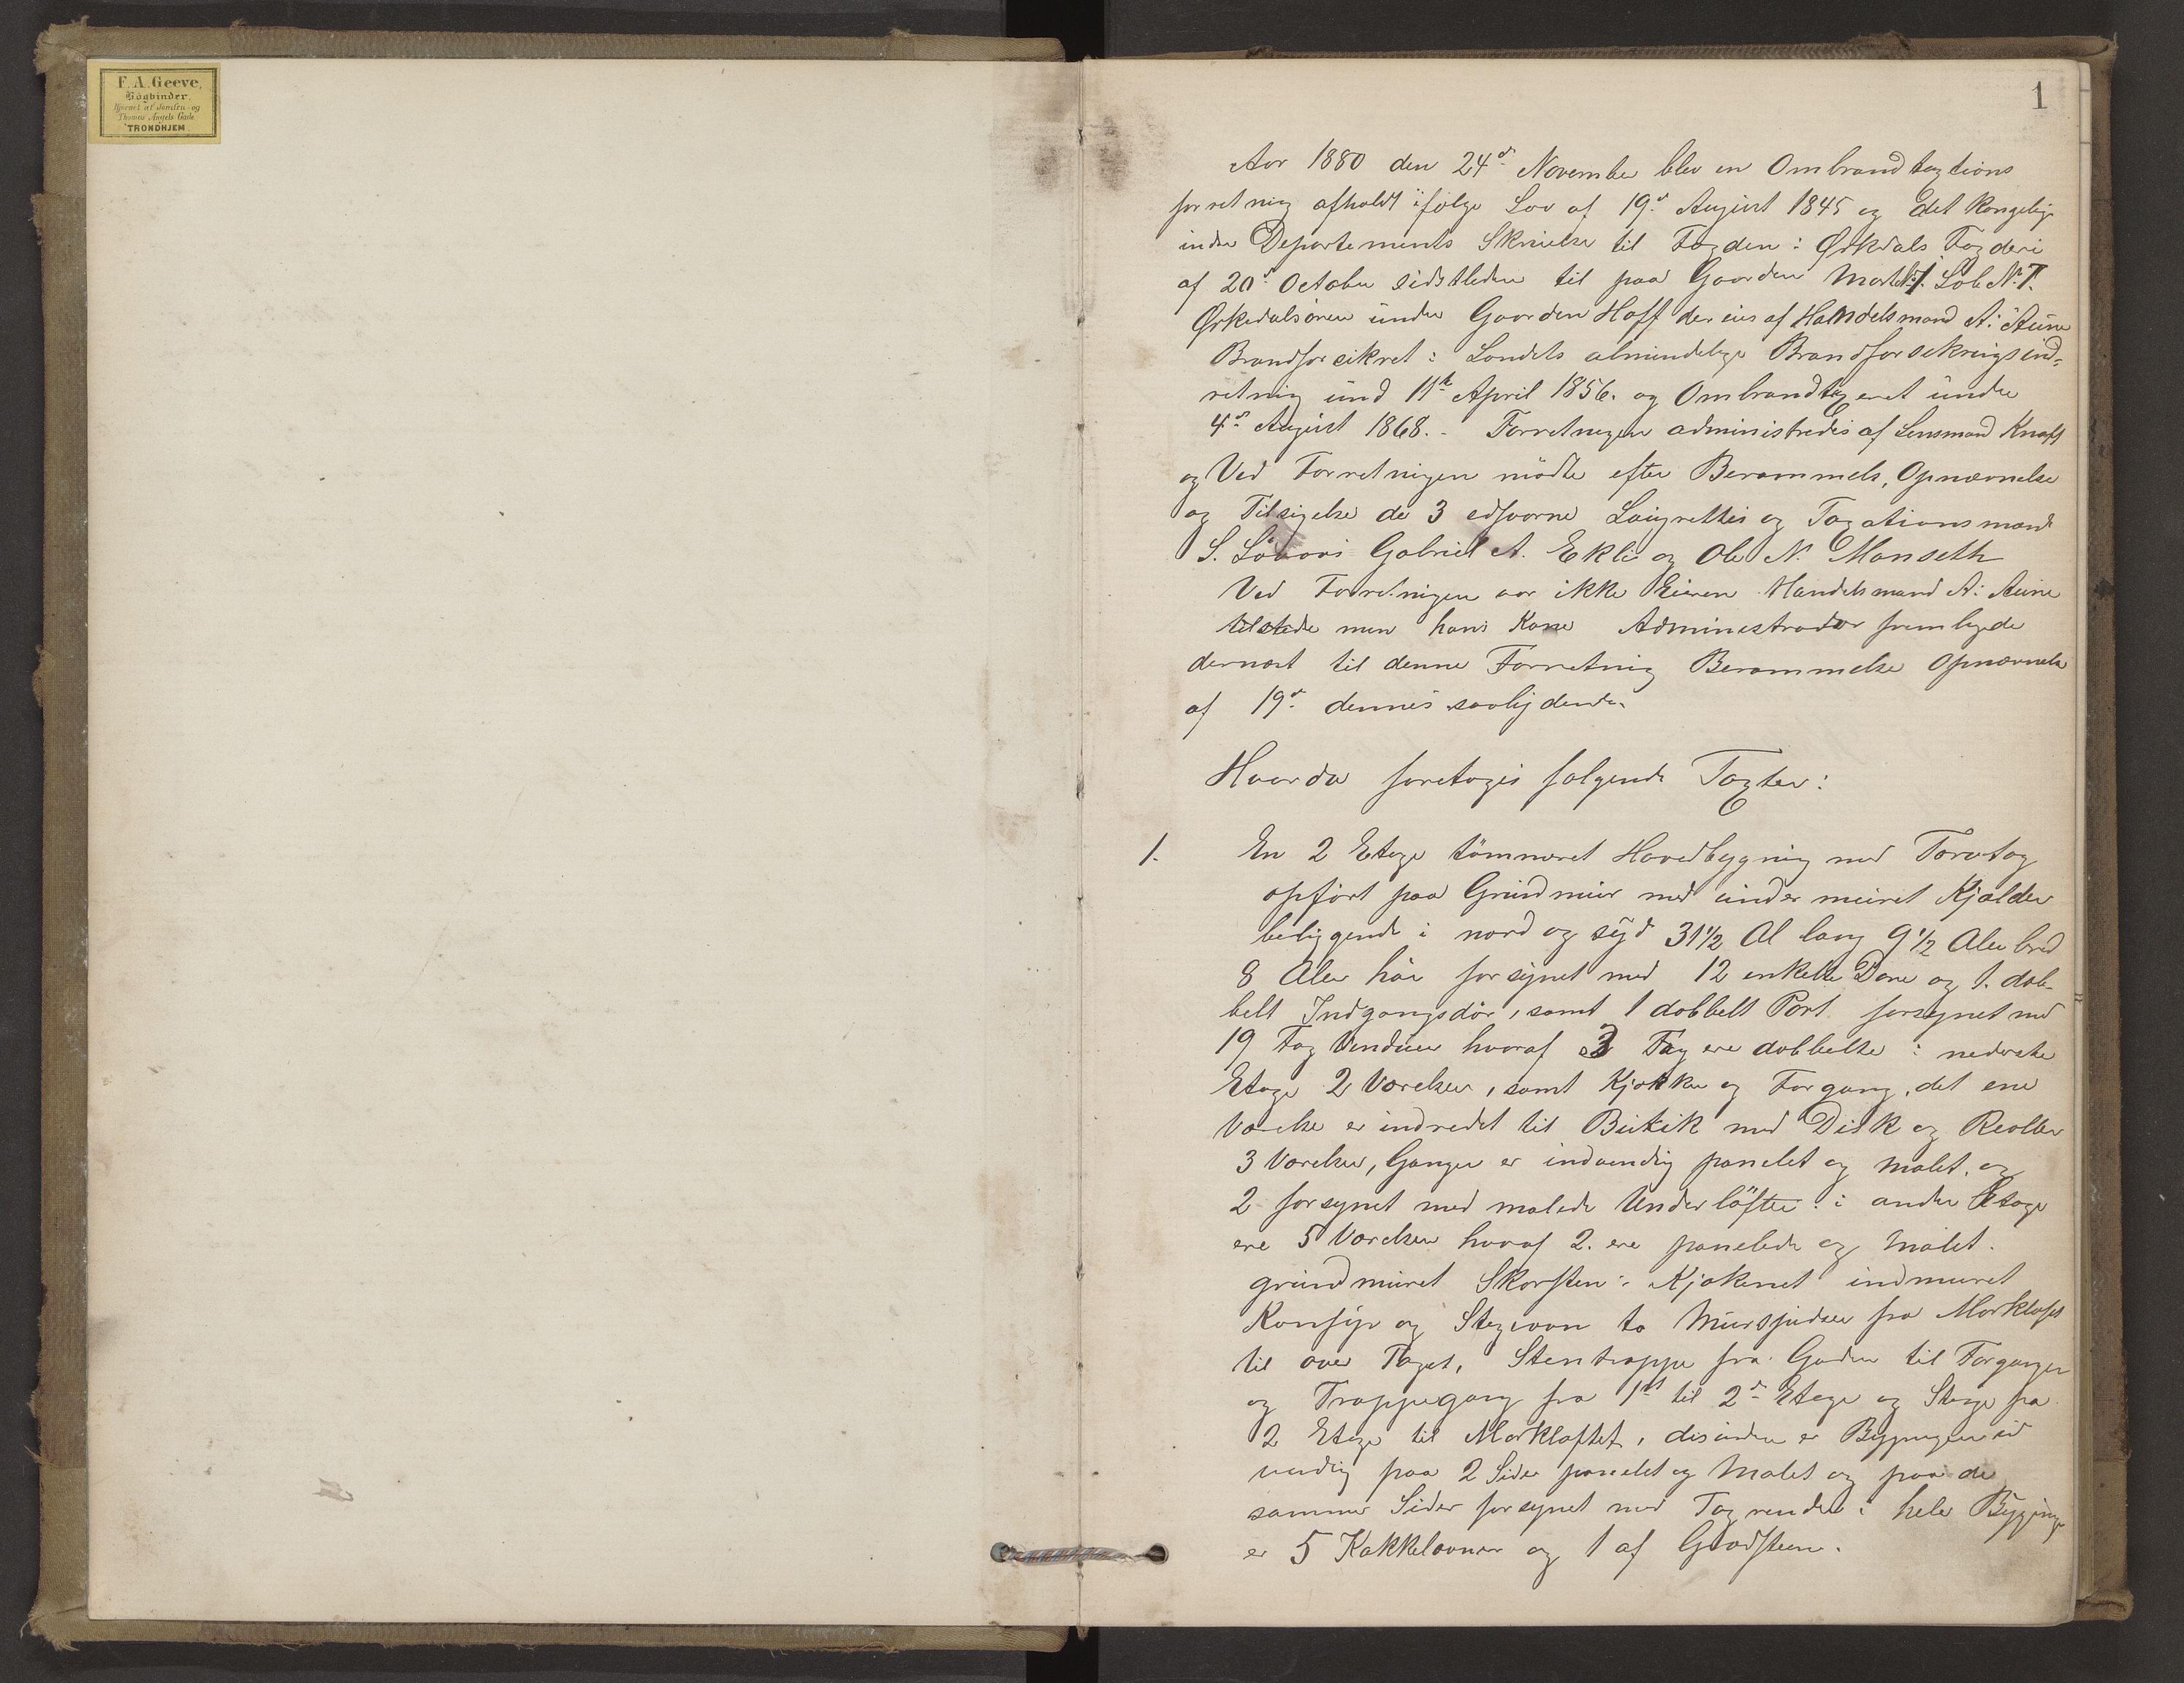 F. A. Geeve,
Bogbinder.
Hjørnet af Jomfru- og
Thomas Angels Gade
TRONDHJEM.
1
Aar 1880 den 24de November blev en Ombrandtaxtions
forretning afholdt ifølge Lov af 19de August 1845 og det kongelige
indre Departements Skrivelse til Fogden i Ørkedals Fogderi
af 20de October sidstleden til paa Gaarden Løbe No 7.
Ørkedalsøren under Gaarden Hoff der eies af Handelsmand A: Aune
Brandforsikret i Landets almindelige Brandforsikringsind-
retning und 11te April 1856. og Ombrandtaxeret under
4de August 1868. - Forretningen administredes af Lensmand Knoff
og Ved Forretningen mødte efter Berammels, Opnævnelse
og Tilsigelse de 3 edsvorne Laugrettes og Taxationsmænd
S. Gabriel A. Ekli og Ole N. Monseth
Ved Forretningen var ikke Eieren Handelsmand A: Aune
tilstede men hans Kone Administrator fremlagde
dernæst til denne Forretning Berammelse Opnævnelse
af 19de dennes saalydende.
Hvorda foretoges følgende Taxter:
1. En 2 Etage tømmeret Hovedbygning med Torvtag
opført paa Grundmuur med under muret Kjælder
beliggende i nord og syd 31 1/2 Al lang 9 1/2 Alen bred
8 Alen høi forsynet med 12 enkelte Døre og 1. dob-
belt Indgangsdør, samt 1 dobbelt Port forsynet med
19 Fag Vinduer hvoraf 3 Fag ere dobbelte i nederste
Etage 2 Værelser, samt Kjøkken og Forgang, det ene
Værelse er indredet til Butik med Disk og Reoller
3 Værelser, Gangen er indvendig panelet og malet, og
2 forsynet med malede Underløfter i anden Etage
ere 5 Værelser hvoraf 2. ere panelede og malet.
grundmuret Skorsten i Kjøkenet indmuret
Komfyr og Stegeovn to Muurspidser fra Mørkloft
til over Taget, Stentrappe fra Gaden til Forgangen
og Trappegang fra 1ste til 2den Etage og Stige fra
2 Etage til Mørkloftet, desuden er Bygningen ud
vendig paa 2 Sider panelet og Malet og paa de
samme Sider forsynet med Tagrender i hele Bygningen
er 5 Kakkelovner og 1 af Grødsteen.